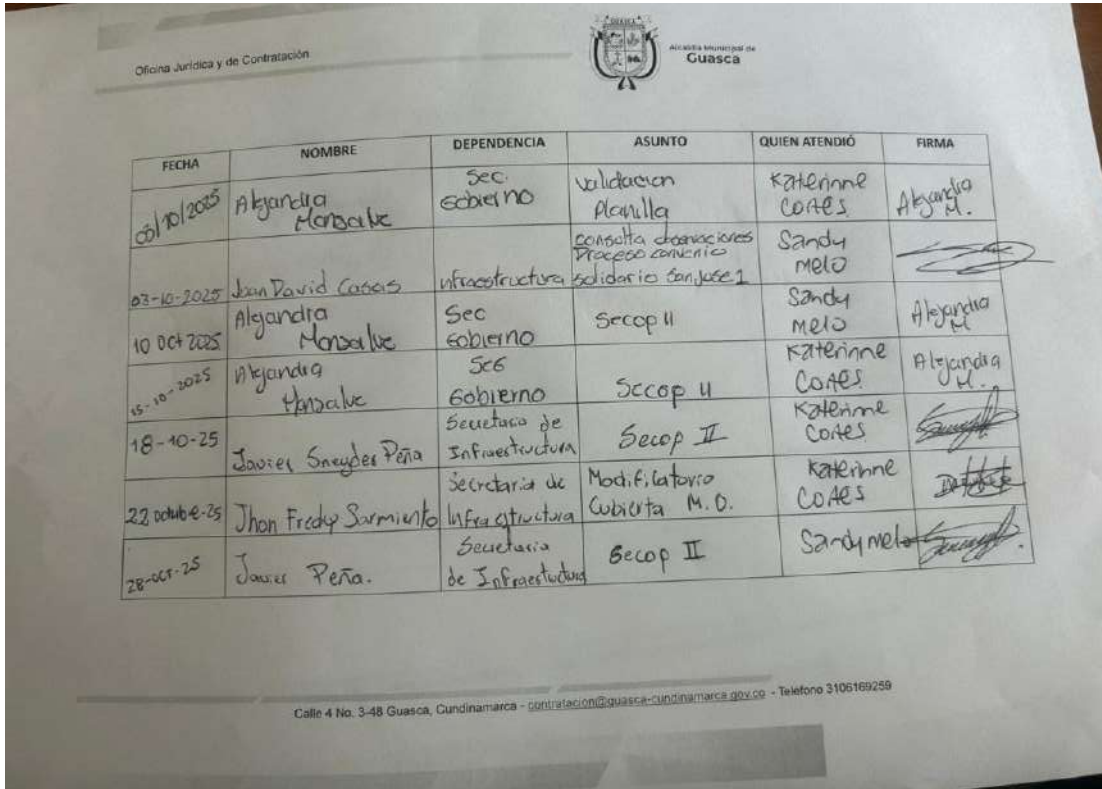 Oficina Jurídica y de Contratación
GUASCA
Alcaldía Municipal de
Guasca
FECHA NOMBRE DEPENDENCIA ASUNTO QUIEN ATENDIÓ FIRMA
/10/2025 Alejandra Monsalve Sec. Gobierno Validacion Planilla Katerinne Cortes Alejandra M.
03-10-2025 Joan David Casas infraestructura consulta observaciones Proceso convenio solidario San Jose 1 Sandy Melo
10 Oct 2025 Alejandra Monsalve Sec Gobierno Secop II Sandy Melo Alejandra M
15-10-2025 Alejandra Monsalve SEG Gobierno Secop II Katerinne Cortes Alejandra M.
18-10-25 Javier Sneyder Peña Secretaria de Infraestructura Secop II Katerinne Cortes
22 octubre-25 Jhon Fredy Sarmiento Secretaria de Infraestructura Modificatorio Cubierta M.O. Katerinne Cortes
28-oct-25 Javier Peña. Secretaria de Infraestructura Secop II Sandy melo
Calle 4 No. 3-48 Guasca, Cundinamarca - contratacion@guasca-cundinamarca.gov.co - Teléfono 3106169259